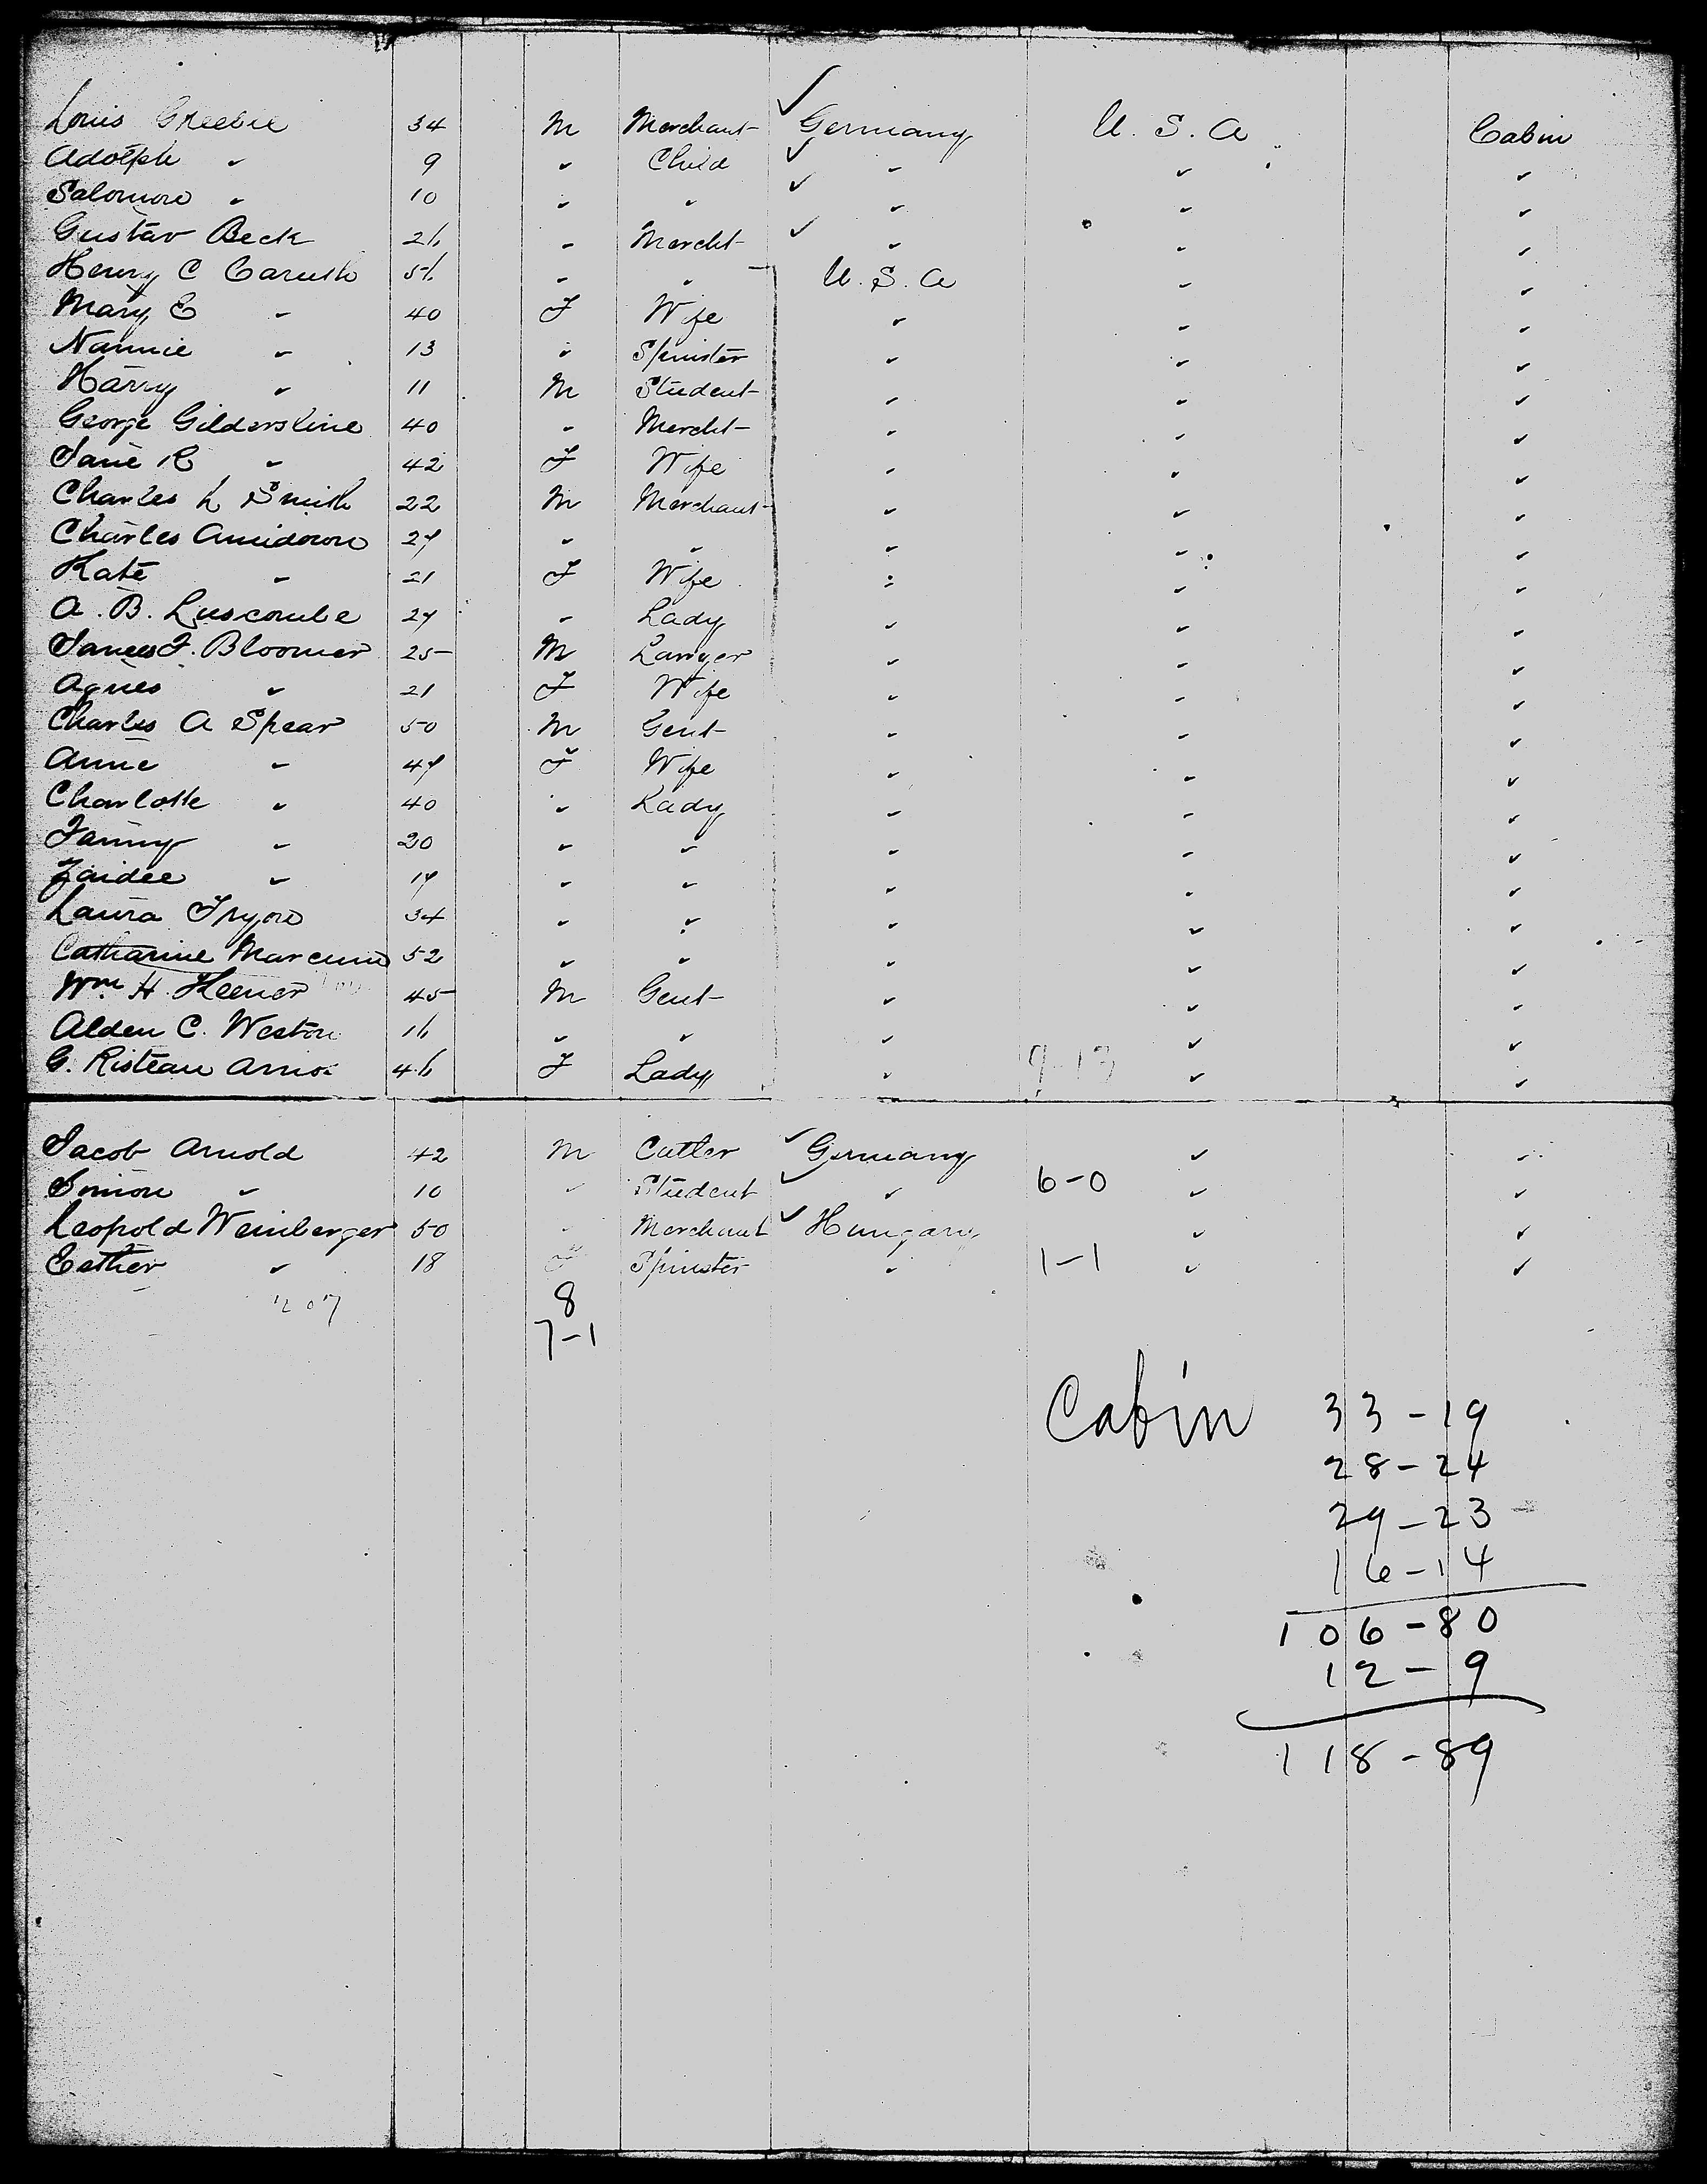 Louis 34 M Merchant Germany U. S. A Cabin
Adolph " 9 " Child " " "
Salomon " 10 " " " " "
Gustav Beck 26 " Mercht " " "
Henry C Caruth 56 " " U. S. A " "
Mary E " 40 F Wife " " "
Nannie " 13 " Spinster " " "
Harry " 11 M Student " " "
George Gildersline 40 " Mercht " " "
Jane R " 42 F Wife " " "
Charles L Smith 22 M Merchant " " "
Charles Amidown 27 " " " " "
Kate " 21 F Wife " " "
A. B. Luscombe 27 " Lady " " "
James F. Bloomer 25 M Lawyer " " "
Agnes " 21 F Wife " " "
Charles A Spear 50 M Gent " " "
Anne " 47 F Wife " " "
Charlotte " 40 " Lady " " "
Fanny " 20 " " " " "
Zaidee " 17 " " " " "
Laura Tryon 34 " " " " "
Catharine 52 " " " " "
Wm H. Keener 45 M Gent " " "
Alden C. Weston 16 " " " " "
G. Risteau 46 F Lady " 9-13 " "
Jacob Arnold 42 M Cutler Germany " "
Simon " 10 " Student " 6-0 " "
Leopold Weinberger 50 " Merchant Hungary " "
Esther " 18 F Spinster " 1-1 " "
207 8
7-1
Cabin 33-19
28-24
29-23
16-14
106-80
12-9
118-89